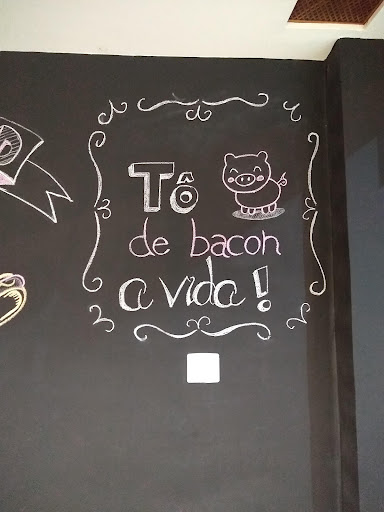 Tô
de bacon
a vida!